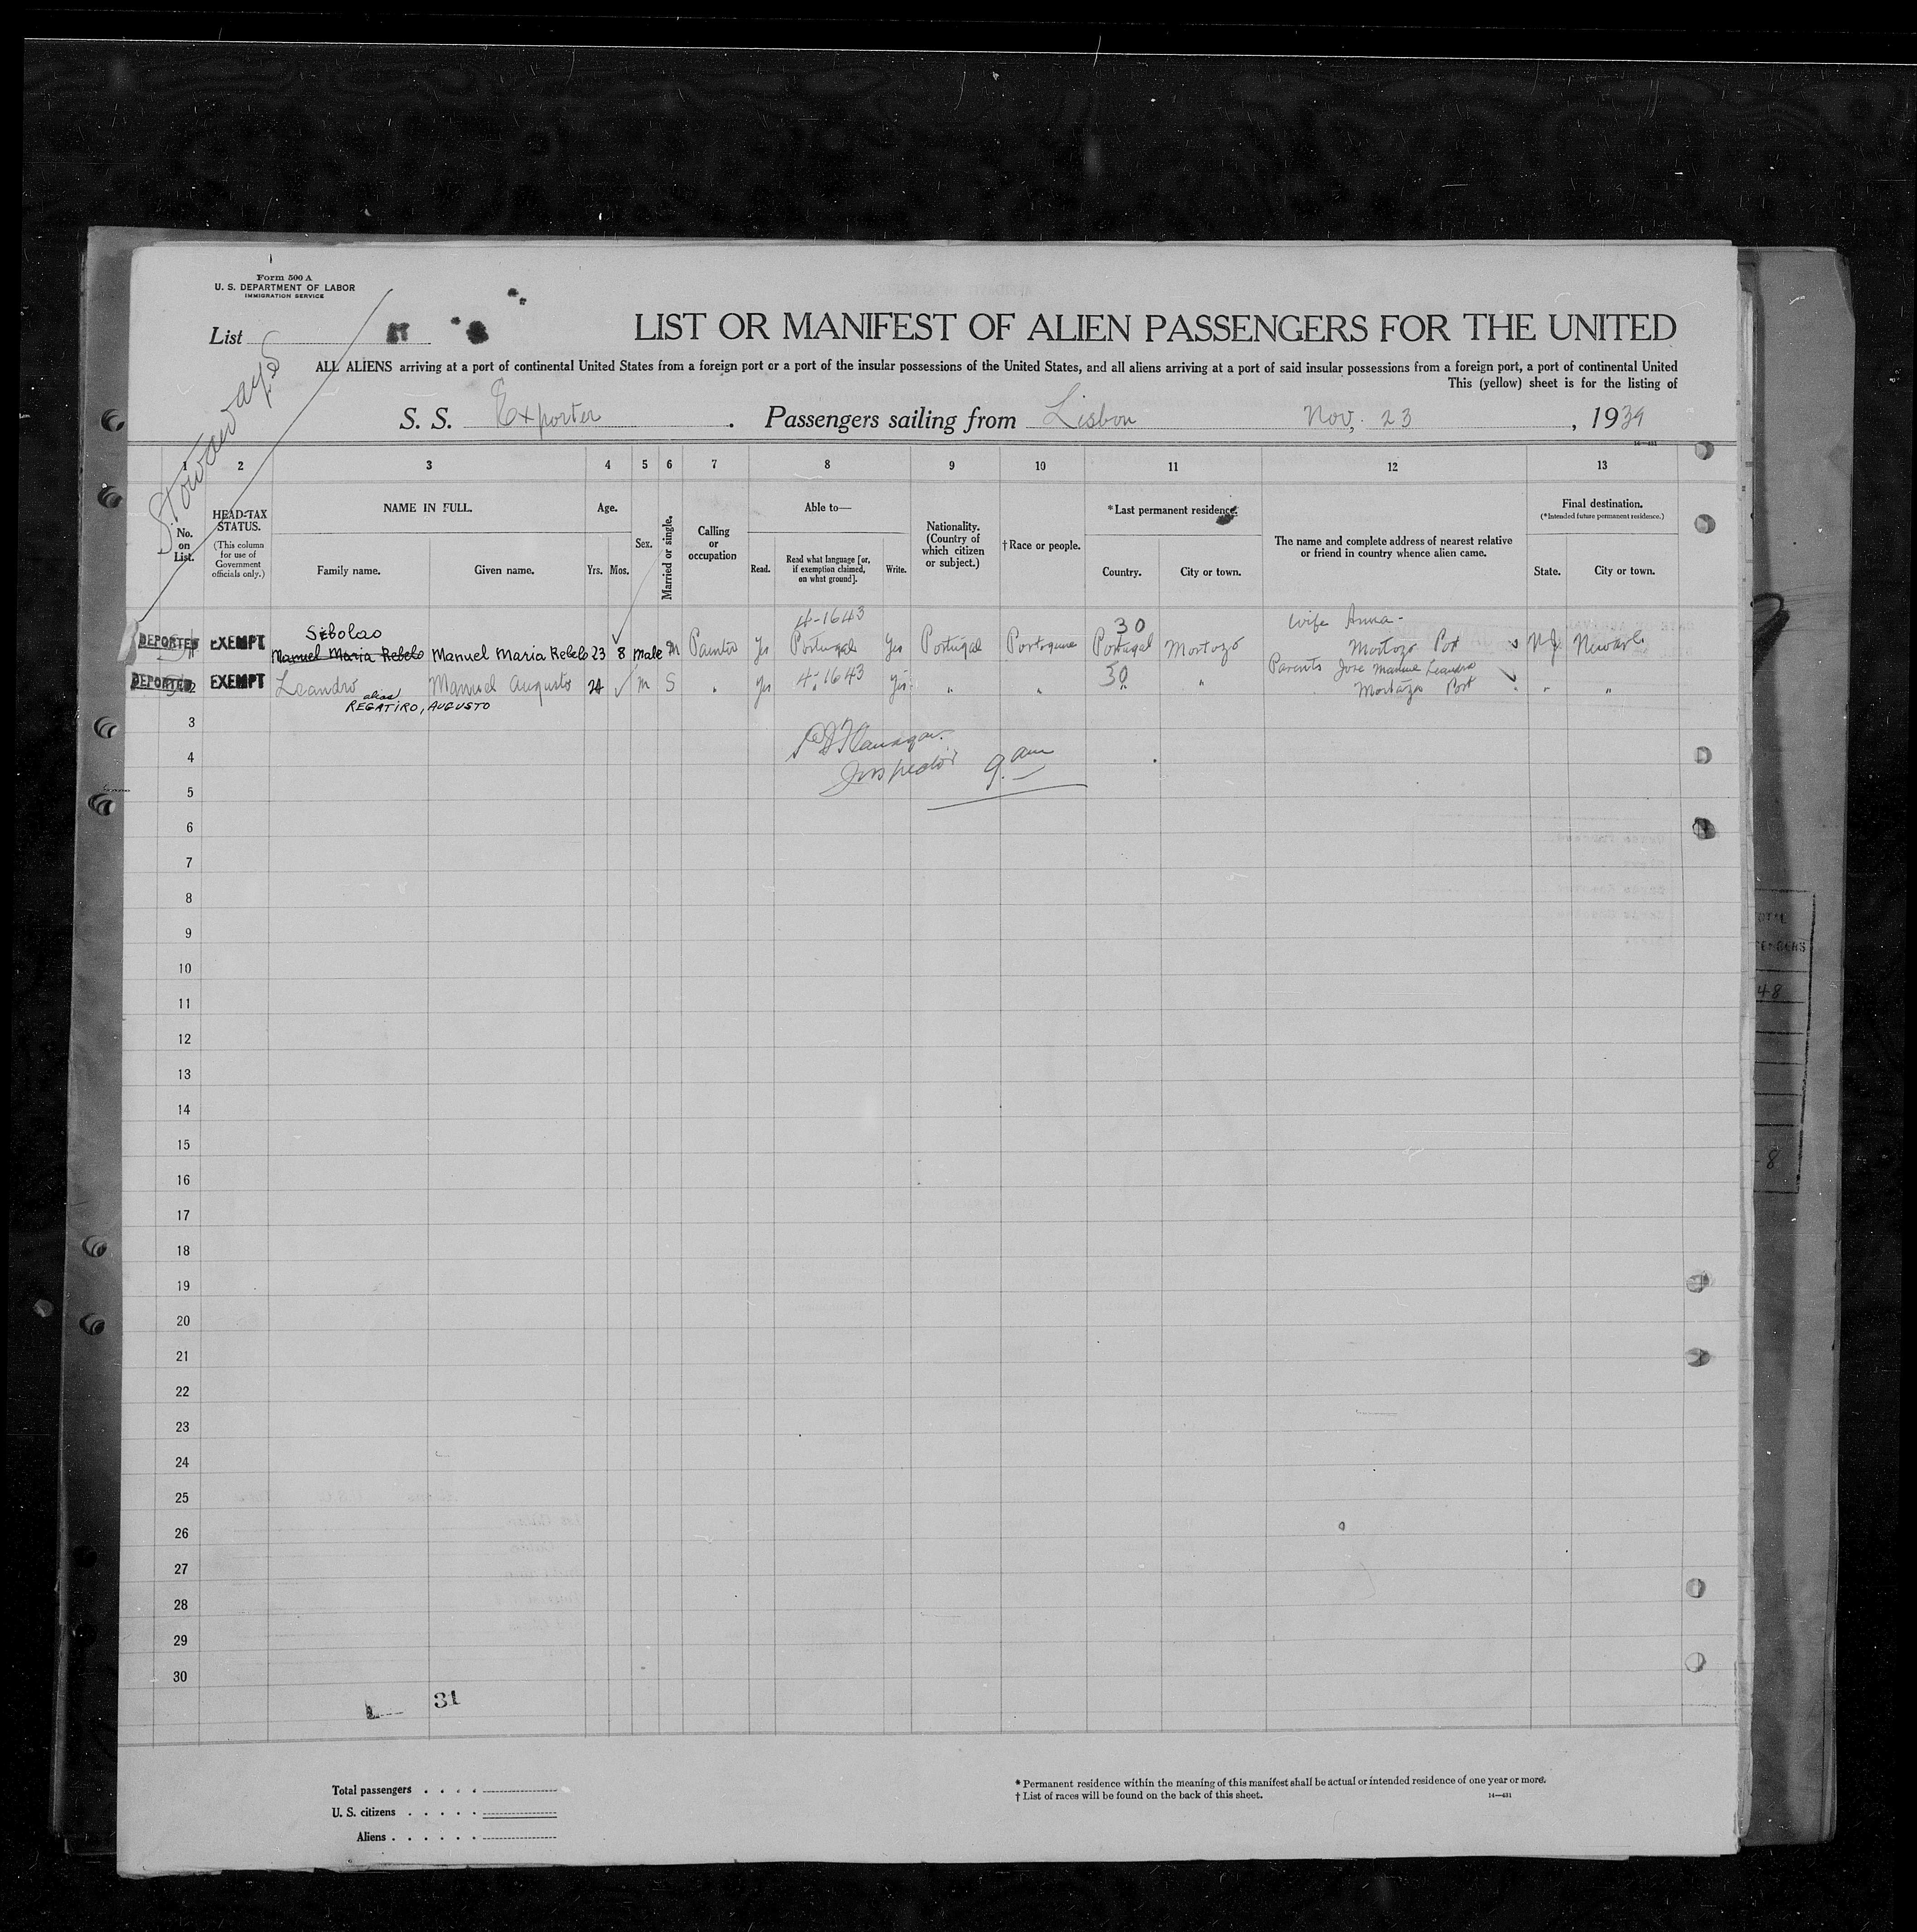 Form 500 A
U. S. DEPARTMENT OF LABOR
IMMIGRATION SERVICE
List
Stowaways
LIST OR MANIFEST OF ALIEN PASSENGERS FOR THE UNITED
ALL ALIENS arriving at a port of continental United States from a foreign port or a port of the insular possessions of the United States, and all aliens arriving at a port of said insular possessions from a foreign port, a port of continental United
This (yellow) sheet is for the listing of
S. S. Exporter . Passengers sailing from Lisbon Nov. 23 , 1939
14—431
1 2 3 4 5 6 7 8 9 10 11 12 13
No. on List.
HEAD-TAX STATUS.
(This column for use of Government officials only.)
NAME IN FULL.
Family name. Given name.
Age.
Yrs. Mos.
Sex.
Married or single.
Calling or occupation
Able to—
Read. Read what language [or, if exemption claimed, on what ground]. Write.
Nationality. (Country of which citizen or subject.)
†Race or people.
*Last permanent residence.
Country. City or town.
The name and complete address of nearest relative or friend in country whence alien came.
Final destination.
(*Intended future permanent residence.)
State. City or town.
Sebolao 4-1643 30 wife Anna-
DEPORTED EXEMPT Manuel Maria Rebelo Manuel Maria Rebelo 23 8 Male M Painter Yes Portugal Yes Portugal Portuguese Portugal Mortozo Mortozo Port N.J. Newark
DEPORTED EXEMPT Leandro Manuel Augusto 24 M S " Yes 4-1643 Yes " " 30 " Parents Jose Manuel Leandro " "
alias Mortozo Port
REGATIRO, AUGUSTO
3
4
Inspector 9 am
5
6
7
8
9
10
11
12
13
14
15
16
17
18
19
20
21
22
23
24
25
26
27
28
29
30
31
Total passengers . . . .
U. S. citizens . . . . .
Aliens . . . . . .
* Permanent residence within the meaning of this manifest shall be actual or intended residence of one year or more.
† List of races will be found on the back of this sheet.
14—431
48
8